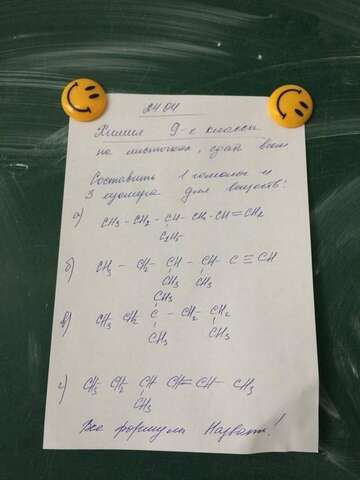 24.04
Химия 9-е классы
на листочках, сдай
Составить 1 гомолог и
3 изомера для веществ:
а) CH3 - CH2 - CH - CH2 - CH = CH2
C2H5
б) CH3 - CH2 - CH - CH - C ≡ CH
CH3 CH3
CH3
в) CH3 CH2 C - CH2 - CH2
CH3 CH3
г) CH3 CH2 CH CH = CH - CH3
CH3
Все формулы назвать!